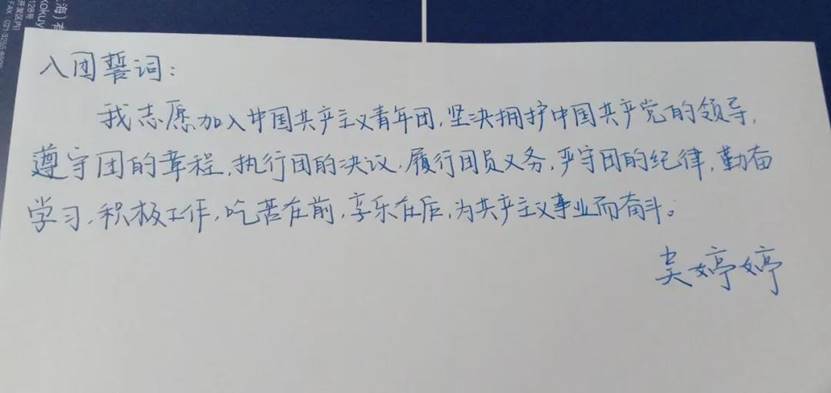 入团誓词:
我志愿加入中国共产主义青年团,坚决拥护中国共产党的领导,
遵守团的章程,执行团的决议,履行团员义务,严守团的纪律,勤奋
学习,积极工作,吃苦在前,享乐在后,为共产主义事业而奋斗。
吴婷婷